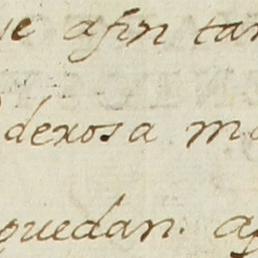 ue afin tan
derosa m
quedan. a